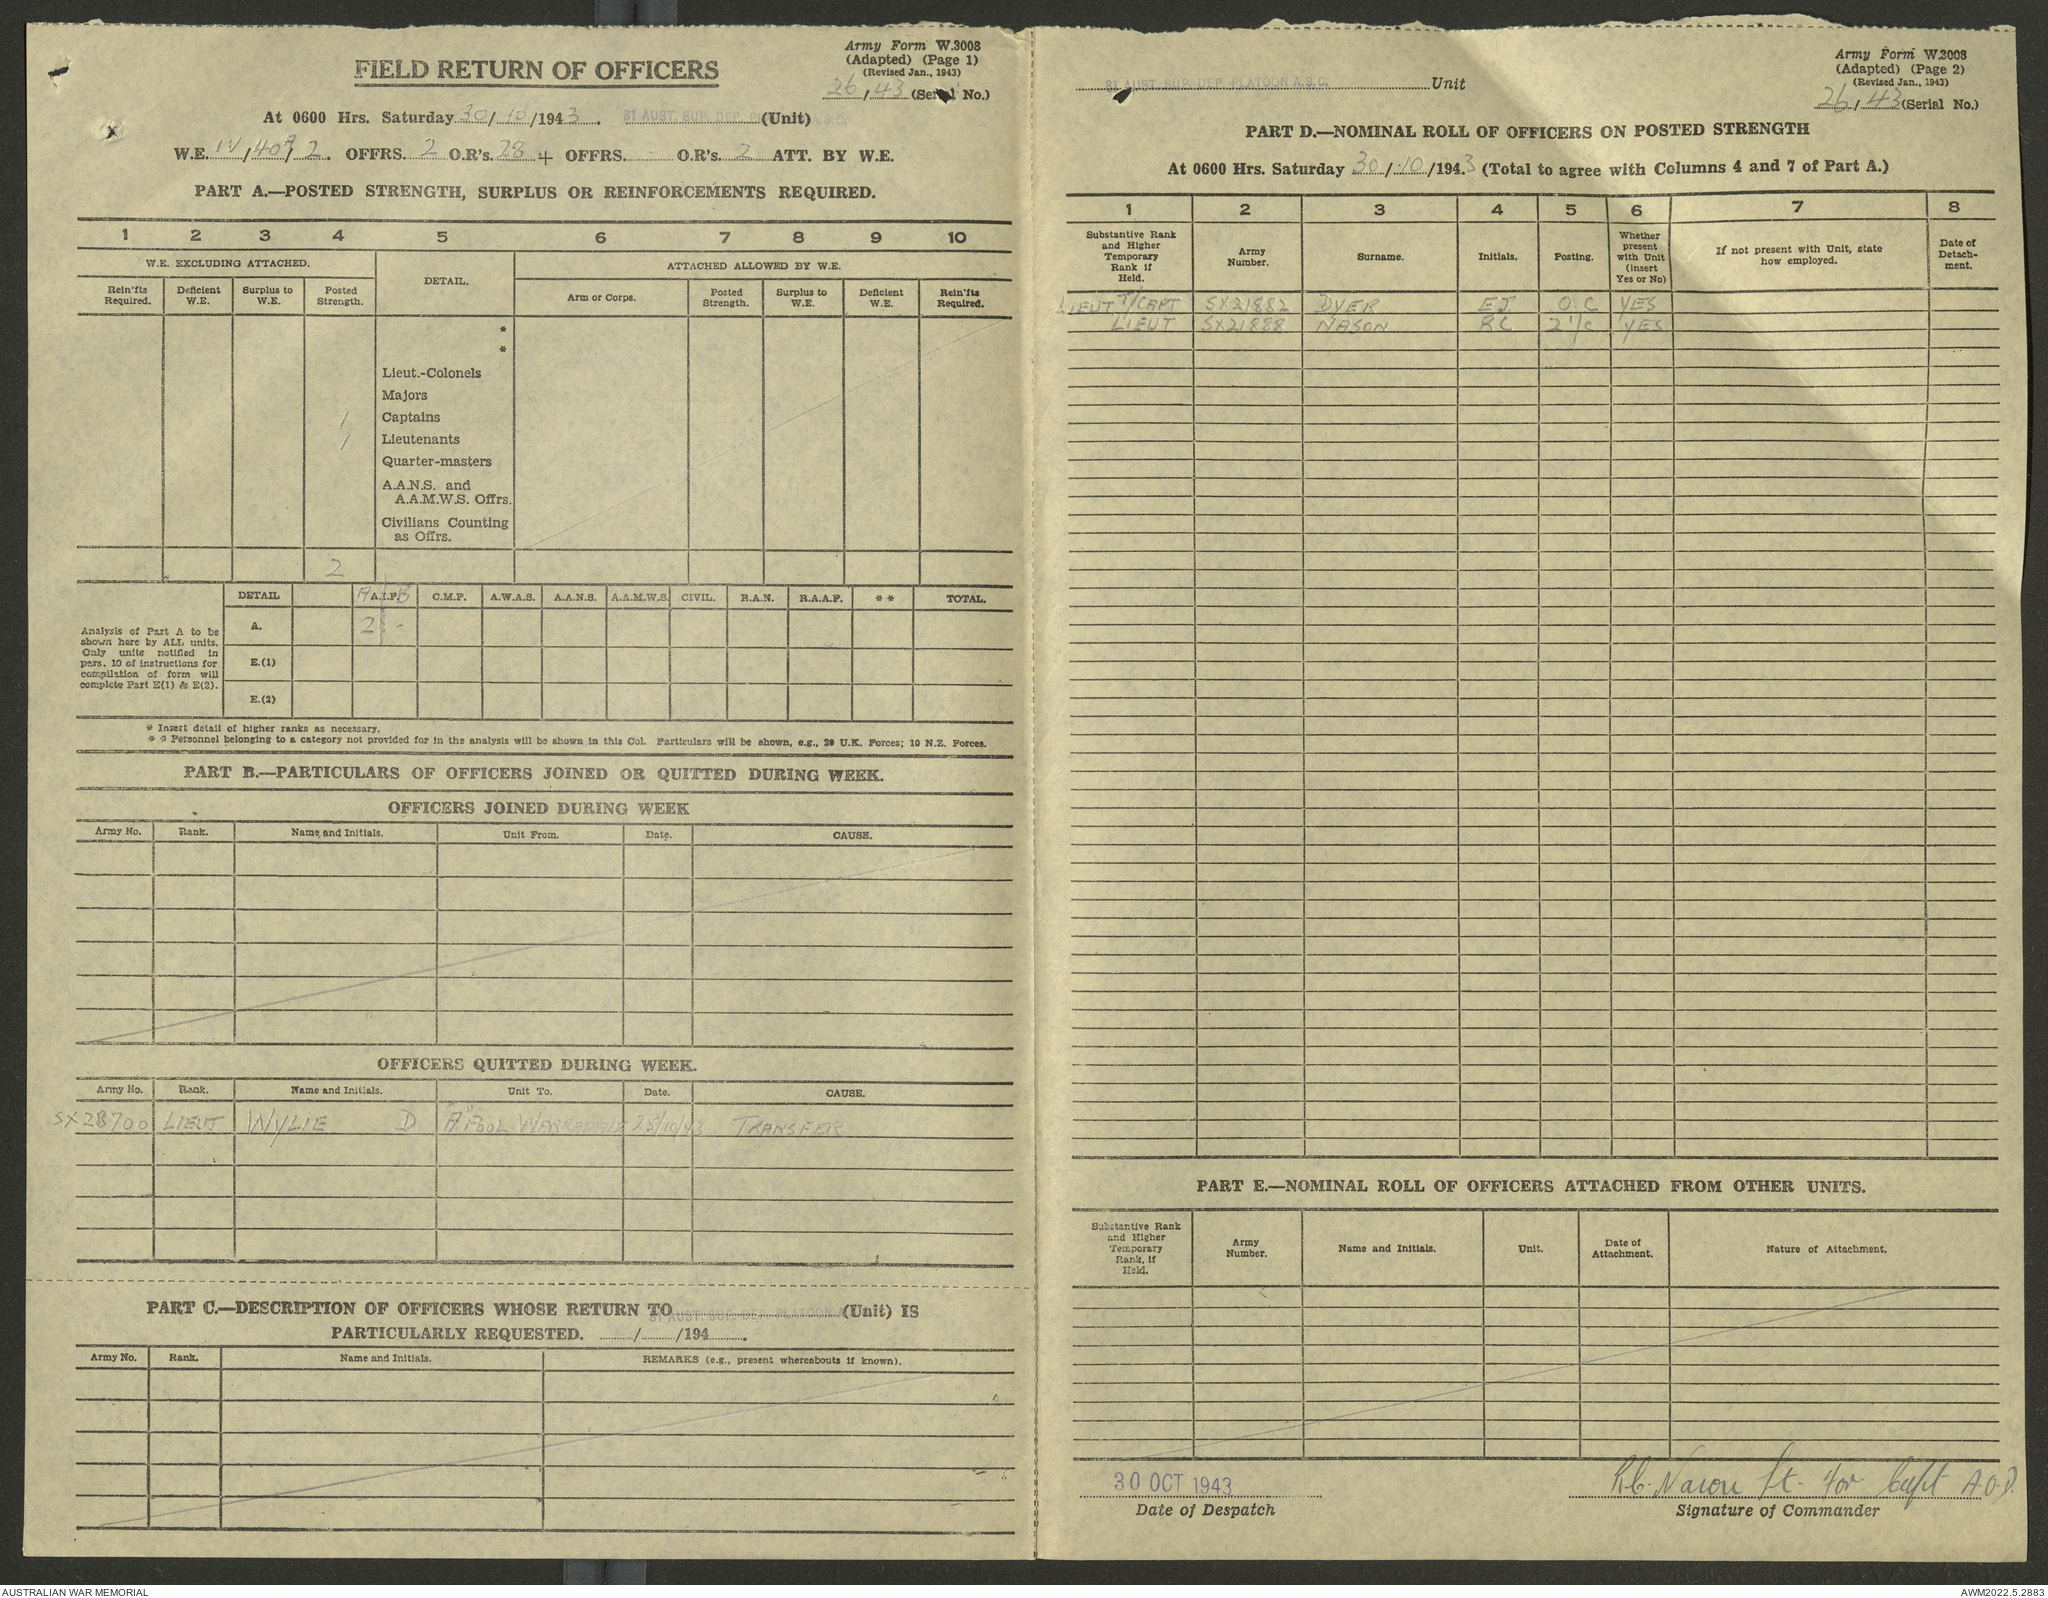 Army Form W.3008
(Adapted) (Page 1)
(Revised Jan., 1943)
26, 43 (Serial No.)
FIELD RETURN OF OFFICERS
At 0600 Hrs. Saturday 30/10/1943. 81 AUST. SUP. DEP. (Unit)
W.E. IV, 40A, 2. OFFRS. 2 O.R's. 28 + OFFRS. - O.R's. 2 ATT. BY W.E.
PART A.—POSTED STRENGTH, SURPLUS OR REINFORCEMENTS REQUIRED.
1 2 3 4 5 6 7 8 9 10
W.E. EXCLUDING ATTACHED. DETAIL. ATTACHED ALLOWED BY W.E.
Rein'fts Required. Deficient W.E. Surplus to W.E. Posted Strength. Arm or Corps. Posted Strength. Surplus to W.E. Deficient W.E. Rein'fts Required.
*
*
Lieut.-Colonels
Majors
1 Captains
1 Lieutenants
Quarter-masters
A.A.N.S. and
A.A.M.W.S. Offrs.
Civilians Counting
as Offrs.
2
DETAIL A A.I.F. B C.M.F. A.W.A.S. A.A.N.S. A.A.M.W.S. CIVIL. R.A.N. R.A.A.F. * * TOTAL.
Analysis of Part A to be
shown here by ALL units.
Only units notified in
para. 10 of instructions for
compilation of form will
complete Part E(1) & E(2).
A. 2 -
E.(1)
E.(2)
* Insert detail of higher ranks as necessary.
* * Personnel belonging to a category not provided for in the analysis will be shown in this Col. Particulars will be shown, e.g., 20 U.K. Forces; 10 N.Z. Forces.
PART B.—PARTICULARS OF OFFICERS JOINED OR QUITTED DURING WEEK.
OFFICERS JOINED DURING WEEK
Army No. Rank. Name and Initials. Unit From. Date. CAUSE.
OFFICERS QUITTED DURING WEEK.
Army No. Rank. Name and Initials. Unit To. Date. CAUSE.
SX28700 LIEUT WYLIE D "A" POOL WARRADALE 25/10/43 TRANSFER
PART C.—DESCRIPTION OF OFFICERS WHOSE RETURN TO 81 AUST. SUP. DEP. PLATOON (Unit) IS
PARTICULARLY REQUESTED. / /194 .
Army No. Rank. Name and Initials. REMARKS (e.g., present whereabouts if known).
Army Form W.3008
(Adapted) (Page 2)
(Revised Jan., 1943)
26, 43 (Serial No.)
81 AUST. SUP. DEP. PLATOON A.S.C. Unit
PART D.—NOMINAL ROLL OF OFFICERS ON POSTED STRENGTH
At 0600 Hrs. Saturday 30/10/1943 (Total to agree with Columns 4 and 7 of Part A.)
1 2 3 4 5 6 7 8
Substantive Rank and Higher Temporary Rank if Held. Army Number. Surname. Initials. Posting. Whether present with Unit (insert Yes or No) If not present with Unit, state how employed. Date of Detach-ment.
LIEUT T/CAPT SX21882 DYER EJ O.C YES
LIEUT SX21888 NASON RC 2 i/c YES
PART E.—NOMINAL ROLL OF OFFICERS ATTACHED FROM OTHER UNITS.
Substantive Rank and Higher Temporary Rank, if Held. Army Number. Name and Initials. Unit. Date of Attachment. Nature of Attachment.
30 OCT 1943
Date of Despatch
R.C. Nason Lt. for Capt A.O.D.
Signature of Commander
AUSTRALIAN WAR MEMORIAL
AWM2022.5.2883